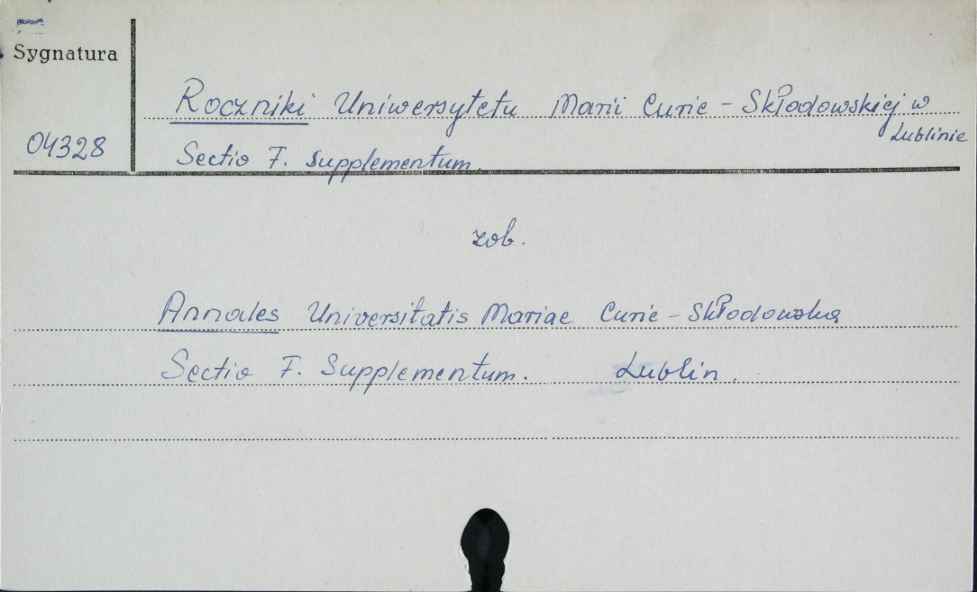 Sygnatura
Roczniki Uniwersytetu Marii Curie - Skłodowskiej w
Lublinie
04328
Sectio F. Supplementum.
zob.
Annales Universitatis Mariae Curie - Skłodowska
Sectio F. Supplementum. Lublin.